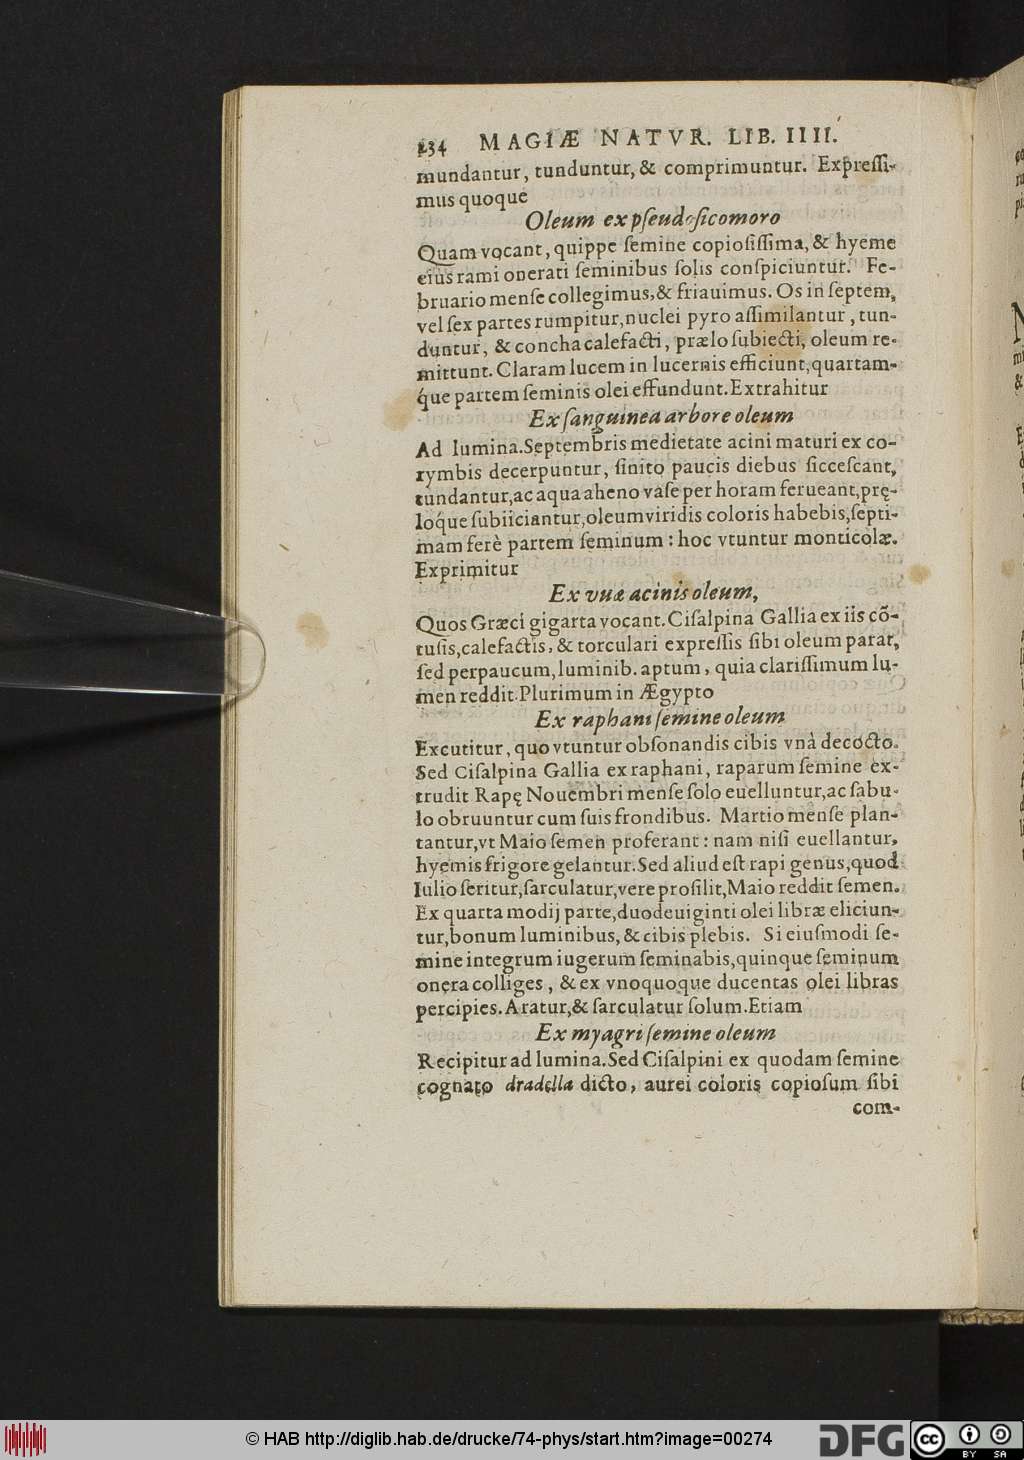 234 MAGIÆ NATVR. LIB. IIII.
mundantur, tunduntur, & comprimuntur. Expreſſi-
mus quoque
Oleum ex pſeudoſicomoro
Quam vocant, quippe ſemine copioſiſſima, & hyeme
eius rami onerati ſeminibus ſolis conſpiciuntur. Fe-
bruario menſe collegimus, & friauimus. Os in ſeptem,
vel ſex partes rumpitur, nuclei pyro aſſimilantur, tun-
duntur, & concha calefacti, prælo ſubiecti, oleum re-
mittunt. Claram lucem in lucernis efficiunt, quartam-
q́ue partem ſeminis olei effundunt. Extrahitur
Ex ſanguinea arbore oleum
Ad lumina. Septembris medietate acini maturi ex co-
rymbis decerpuntur, ſinito paucis diebus ſicceſcant,
tundantur, ac aqua aheno vaſe per horam ferueant, prę-
loq́ue ſubiiciantur, oleum viridis coloris habebis, ſepti-
mam ferè partem ſeminum: hoc vtuntur monticolæ.
Exprimitur
Ex vuæ acinis oleum,
Quos Græci gigarta vocant. Ciſalpina Gallia ex iis cõ-
tuſis, calefactis, & torculari expreſſis ſibi oleum parat,
ſed perpaucum, luminib. aptum, quia clariſſimum lu-
men reddit. Plurimum in Ægypto
Ex raphani ſemine oleum
Excutitur, quo vtuntur obſonandis cibis vnà decocto.
Sed Ciſalpina Gallia ex raphani, raparum ſemine ex-
trudit Rapę Nouembri menſe ſolo euelluntur, ac ſabu-
lo obruuntur cum ſuis frondibus. Martio menſe plan-
tantur, vt Maio ſemen proferant: nam niſi euellantur,
hyemis frigore gelantur. Sed aliud eſt rapi genus, quod
Iulio ſeritur, ſarculatur, vere proſilit, Maio reddit ſemen.
Ex quarta modij parte, duodeuiginti olei libræ eliciun-
tur, bonum luminibus, & cibis plebis. Si eiuſmodi ſe-
mine integrum iugerum ſeminabis, quinque ſeminum
onera colliges, & ex vnoquoque ducentas olei libras
percipies. Aratur, & ſarculatur ſolum. Etiam
Ex myagri ſemine oleum
Recipitur ad lumina. Sed Ciſalpini ex quodam ſemine
cognato dradella dicto, aurei coloris copioſum ſibi
com-
© HAB http://diglib.hab.de/drucke/74-phys/start.htm?image=00274
DFG
cc BY SA